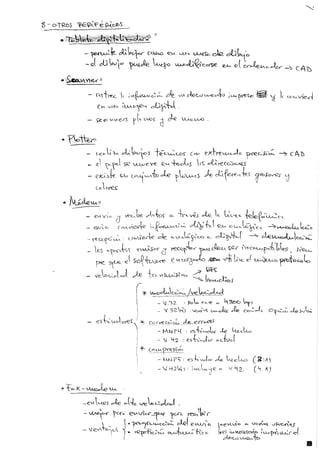 5- OTROS PERIFÉRICOS
• Tableta digitalizadora
- permite dibujar como en una mesa de dibujo
- el dibujo puede luego modificarse en el ordenador → CAD
• Scanner
- rastrea la información de un documento impreso y la convierte
en una imagen digital.
- scanners planos y de mano.
• Plotter
- realiza dibujos técnicos con extremada precisión → CAD
- el papel se mueve en todas las direcciones
- existe un conjunto de plumas de diferentes grosores y
colores
• Módem
- envía y recibe datos a través de la línea telefónica
- envía: convierte información digital en analógica → modulación
- recepción: convierte de analógica a digital → demodulación
- los aparatos emisor y receptor pueden ser incompatibles,
pe que el software utilice el mismo protocolo
- velocidad de transmisión → bps
→ baudios
- estándares
* modulación/velocidad
- V.32 : 4800 bps
- V.32bis :
* corrección de errores
- MNP4 : estándar de hecho
- V 42 : estándar actual
* compresión
- MNP5 : estándar de hecho (2:1)
- V42bis : incluye a V42. (4:1)
• Fax-modem
- enlaces de alta velocidad.
- mejor para enviar que para recibir
- ventajas
• programación del envío a varios usuarios
• repetición automática
sin necesidad imprimir el
documento